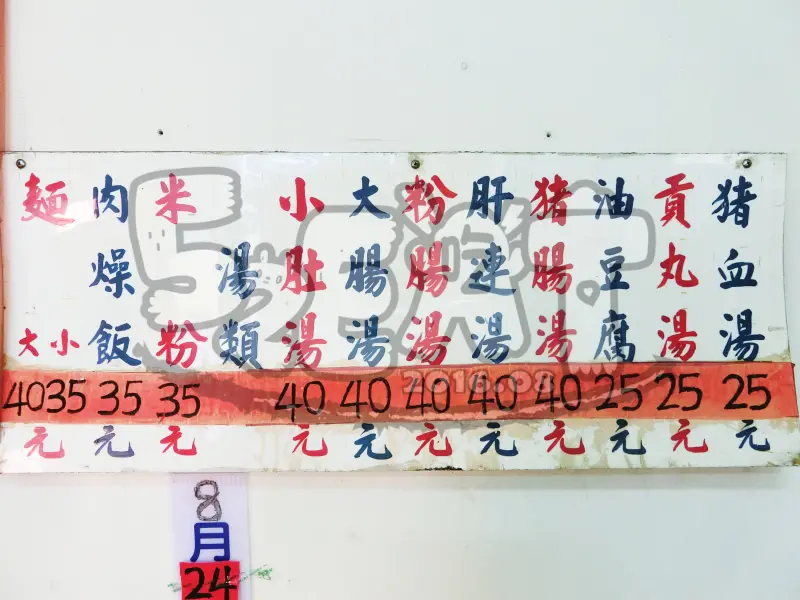 麵 大 小 40 35 元
肉燥飯 35 元
米粉 35 元
湯類
小肚湯 40 元
大腸湯 40 元
粉腸湯 40 元
肝連湯 40 元
猪腸湯 40 元
油豆腐 25 元
貢丸湯 25 元
猪血湯 25 元
8
月
24
2018.08